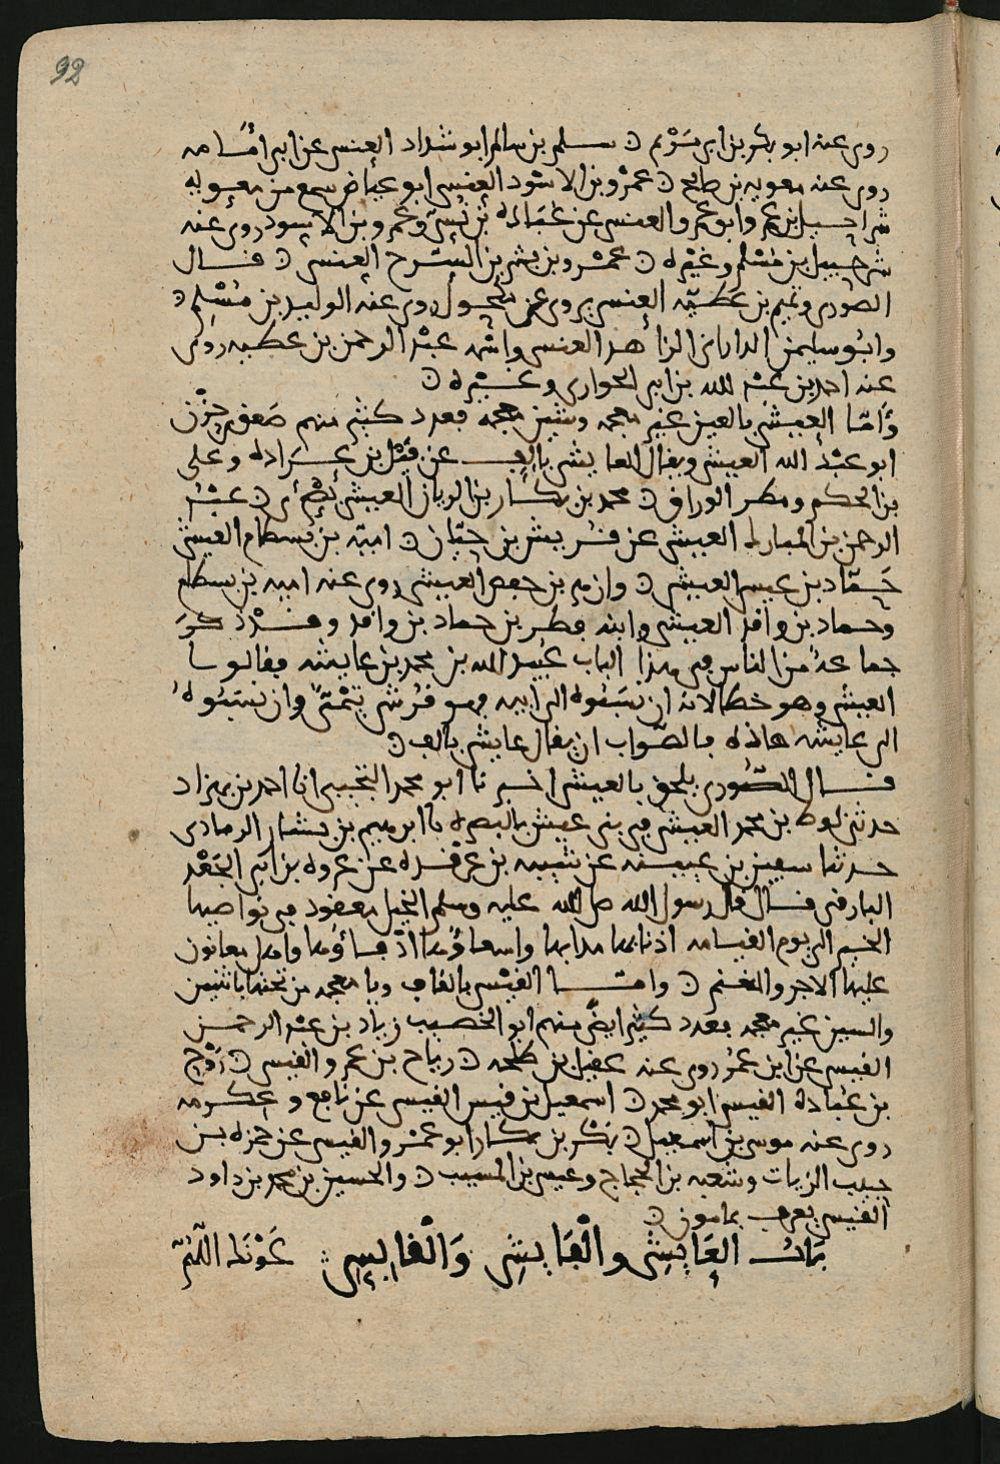 92
روى عنه ابو بكر بن ابى مريم ○ سلم بن سالم ابو شداد العنسى عن ابى أمامه
روى عنه معويه بن صالح ○ عمرو بن الاسود العنسى ابو عياض سمع من معويه
شراحبيل بن عمرو ابو عمرو العنسى عن عبادة بن نسى وعمرو بن الاسود روى عنه
شرحبيل بن مسلم وغيره ○ عمرو بن بشر بن السرح العنسى ○ قال
الصورى وتميم بن عطية العنسى يروى عن مكحول روى عنه الوليد بن مسلم ○
وابو سليمن الدارانى الزاهد العنسى واسمه عبد الرحمن بن عطيه روى
عنه احمد بن عبد الله بن ابى الحوارى وغيره ○
وأمّا العيشى بالعين غير معجمه وشين معجمه فعدد كثير منهم صعق بن حزن
ابو عبد الله العيشى ويقال العايشى بالف عن فيل بن عرادة وعلى
بن الحكم ومطر الوراق ○ محمد بن بكار بن الريان العيشى بصرى ○ عبد
الرحمن بن المبارك العيشى عن قريش بن حيان ○ امية بن بسطام العيشى
حماد بن عيسى العيشى ○ وازهر بن حفص العيشى روى عنه اميه بن بسطام
وحماد بن واقد العيشى وابنه فطر بن حماد بن واقد وقد ذكر
جماعة من الناس فى هذا الباب عبيد الله بن محمد بن عايشه فقالوا
العيشى وهو خطا لانه ان نسبوه الى ابيه فهو قرشى تيمى وان نسبوه
الى عايشه هاذه فالصواب ان يقال عايشى بالف ○
قال الصورى يلحق بالعيشى اخبرنا ابو محمد التجيبى انا احمد بن بهزاد
حدثنى لوط بن محمد العيشى فى بنى عيش بالبصره نا ابرهيم بن بشار الرمادى
حدثنا سفين بن عيينه عن شبيب بن غرقده عن عروه بن ابى الجعد
البارقى قال قال رسول الله صلى الله عليه وسلم الخيل معقود فى نواصيها
الخير الى يوم القيامه اذنابها مذابها واعرافها ادفاؤها واهلها معانون
عليها الاجر والمغنم ○ وامّا القيسى بالقاف ويا معجمه من تحتها باثنين
والسين غير معجمه فعدد كثير ايضا منهم ابو الخصيب زياد بن عبد الرحمن
القيسى عن ابن عمر روى عنه عقيل بن طلحه ○ رياح بن عمرو القيسى ○ روح
بن عبادة القيسى ابو محمد ○ اسمعيل بن قيس القيسى عن نافع وعكرمه
روى عنه موسى بن اسمعيل ○ بكر بن بكار ابو عمرو القيسى عن حمزه بن
حبيب الزيات وشعبه بن الحجاج وعيسى بن المسيب ○ والحسين بن محمد بن داود
القيسى يعرف بمامون ○
باب العايشى والقايشى والقابسى عونك اللهم